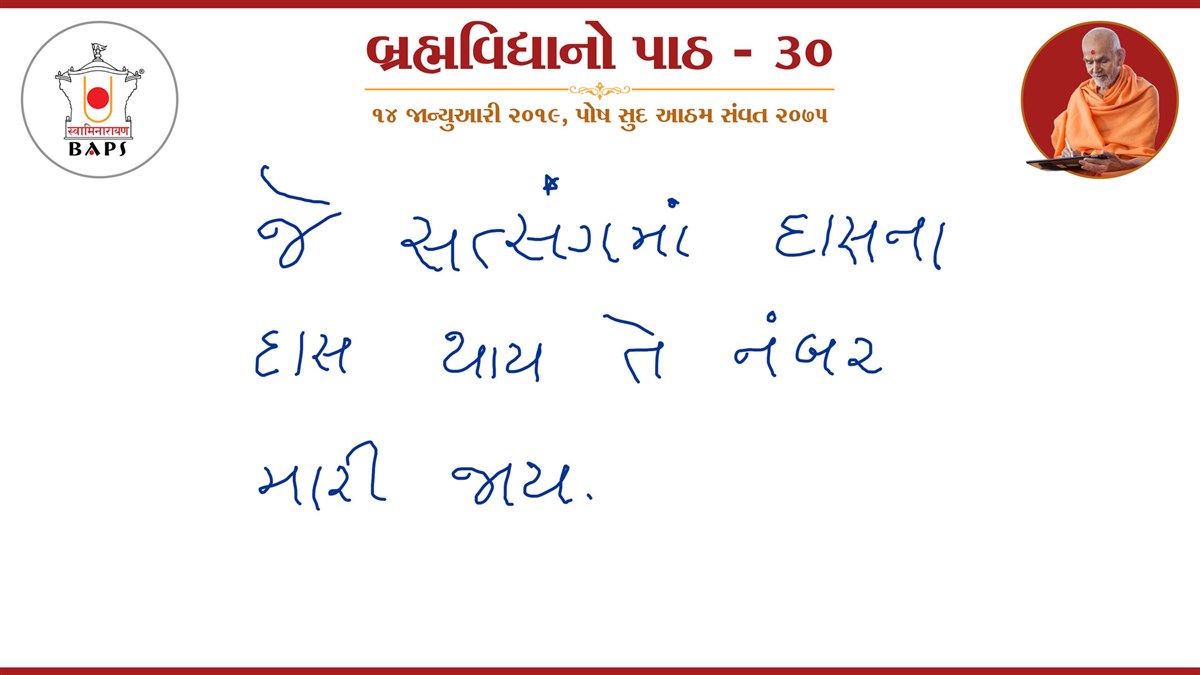 બ્રહ્મવિદ્યાનો પાઠ - ૩૦
૧૪ જાન્યુઆરી ૨૦૧૯, પોષ સુદ આઠમ સંવત ૨૦૭૫
स्वामिनारायण
BAPS
જે સત્સંગમાં દાસના
દાસ થાય તે નંબર
મારી જાય.